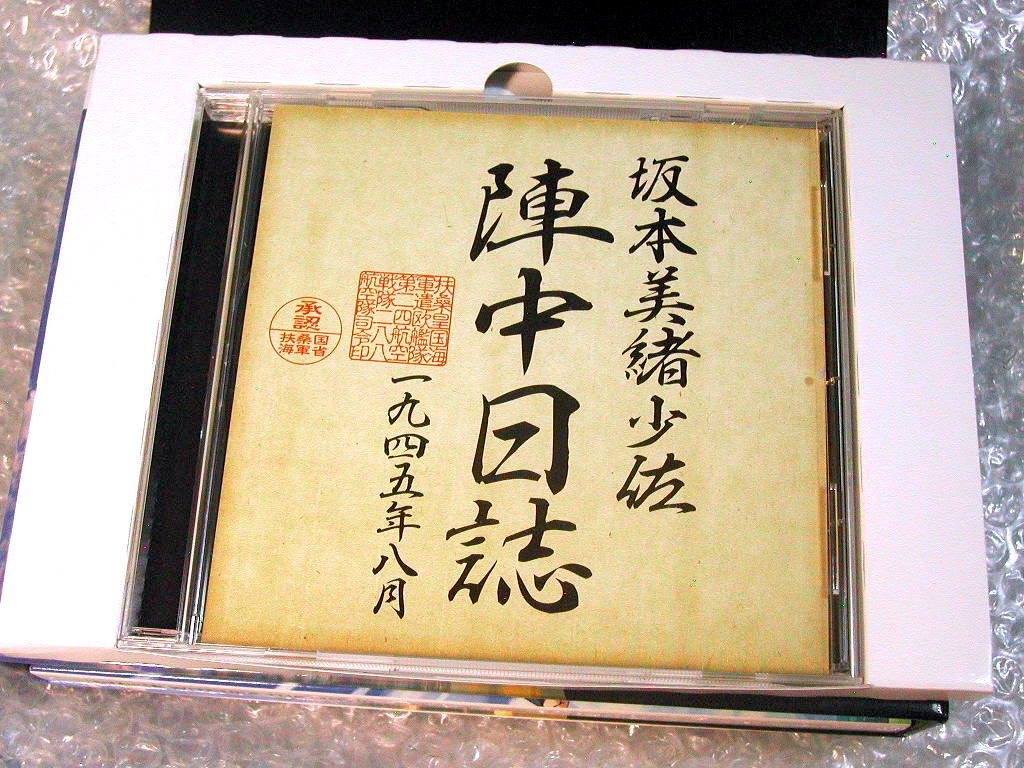 坂本美緒少佐
陣中日誌
扶桑皇国海
軍遣欧艦隊
第二四航空
戦隊二八八
航空隊司令印
一九四五年八月
承認
扶桑国
海軍省